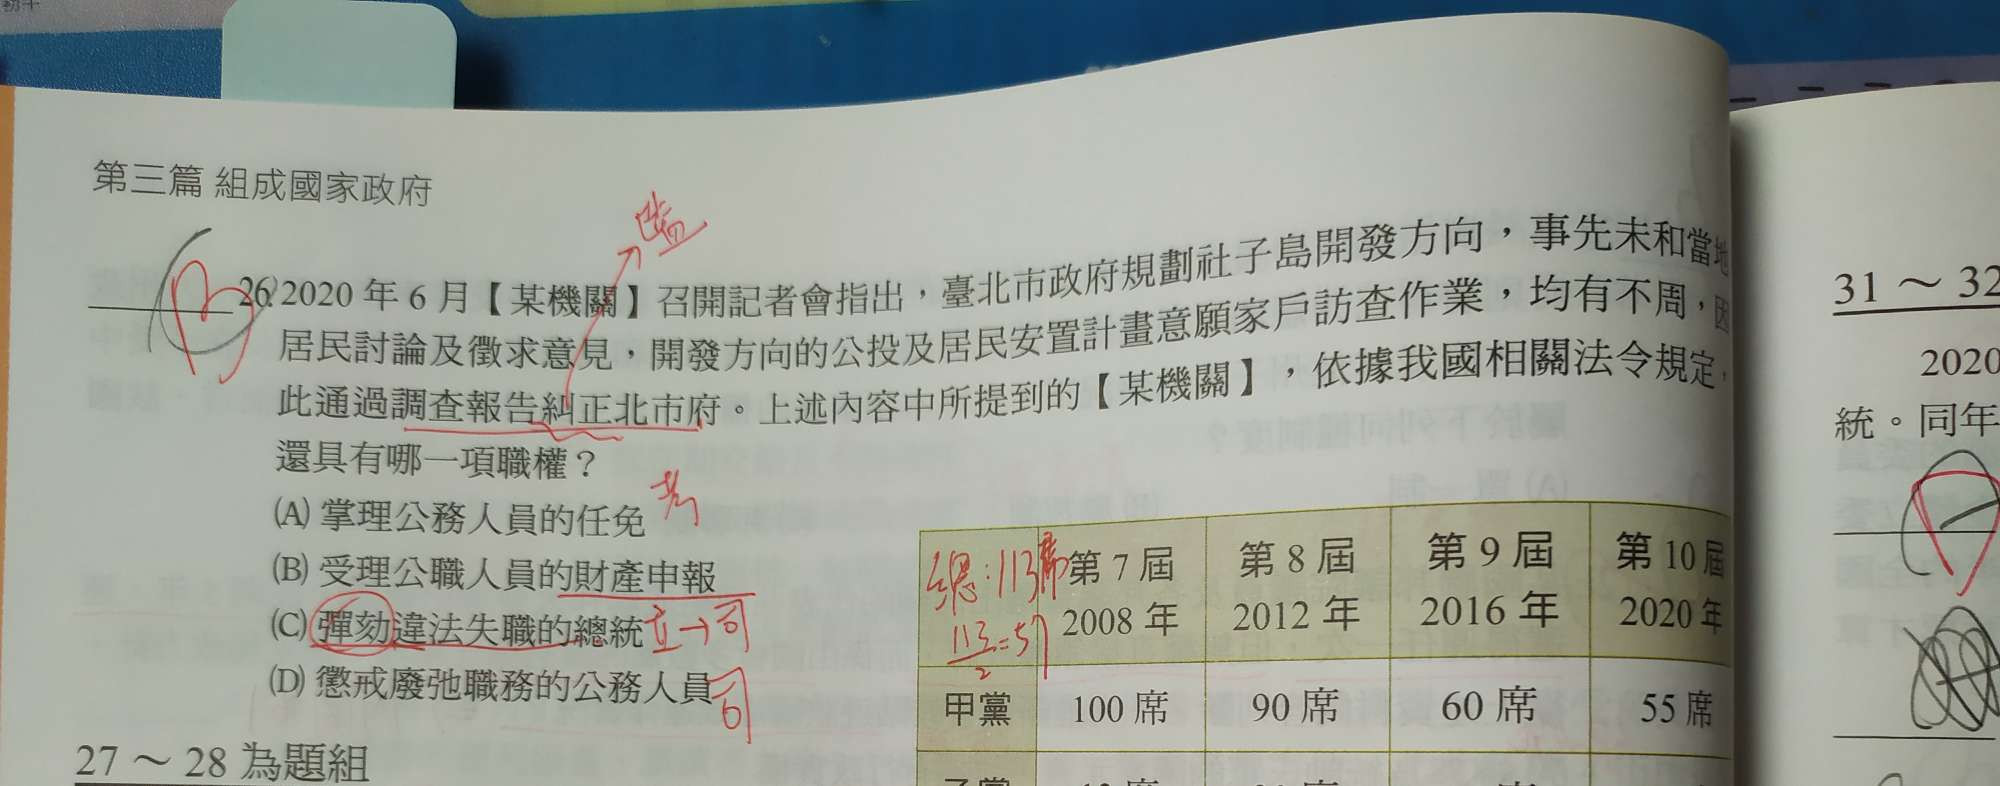 第三篇 組成國家政府
監
B
26. 2020 年 6 月【某機關】召開記者會指出，臺北市政府規劃社子島開發方向，事先未和當地
居民討論及徵求意見，開發方向的公投及居民安置計畫意願家戶訪查作業，均有不周，因
此通過調查報告糾正北市府。上述內容中所提到的【某機關】，依據我國相關法令規定，
還具有哪一項職權？
(A) 掌理公務人員的任免 考
(B) 受理公職人員的財產申報
(C) 彈劾違法失職的總統 立→司
(D) 懲戒廢弛職務的公務人員 司
總:113席
113/2=57
第 7 屆 第 8 屆 第 9 屆 第 10 屆
2008 年 2012 年 2016 年 2020 年
甲黨 100 席 90 席 60 席 55 席
27～28 為題組
31～32
2020
統。同年